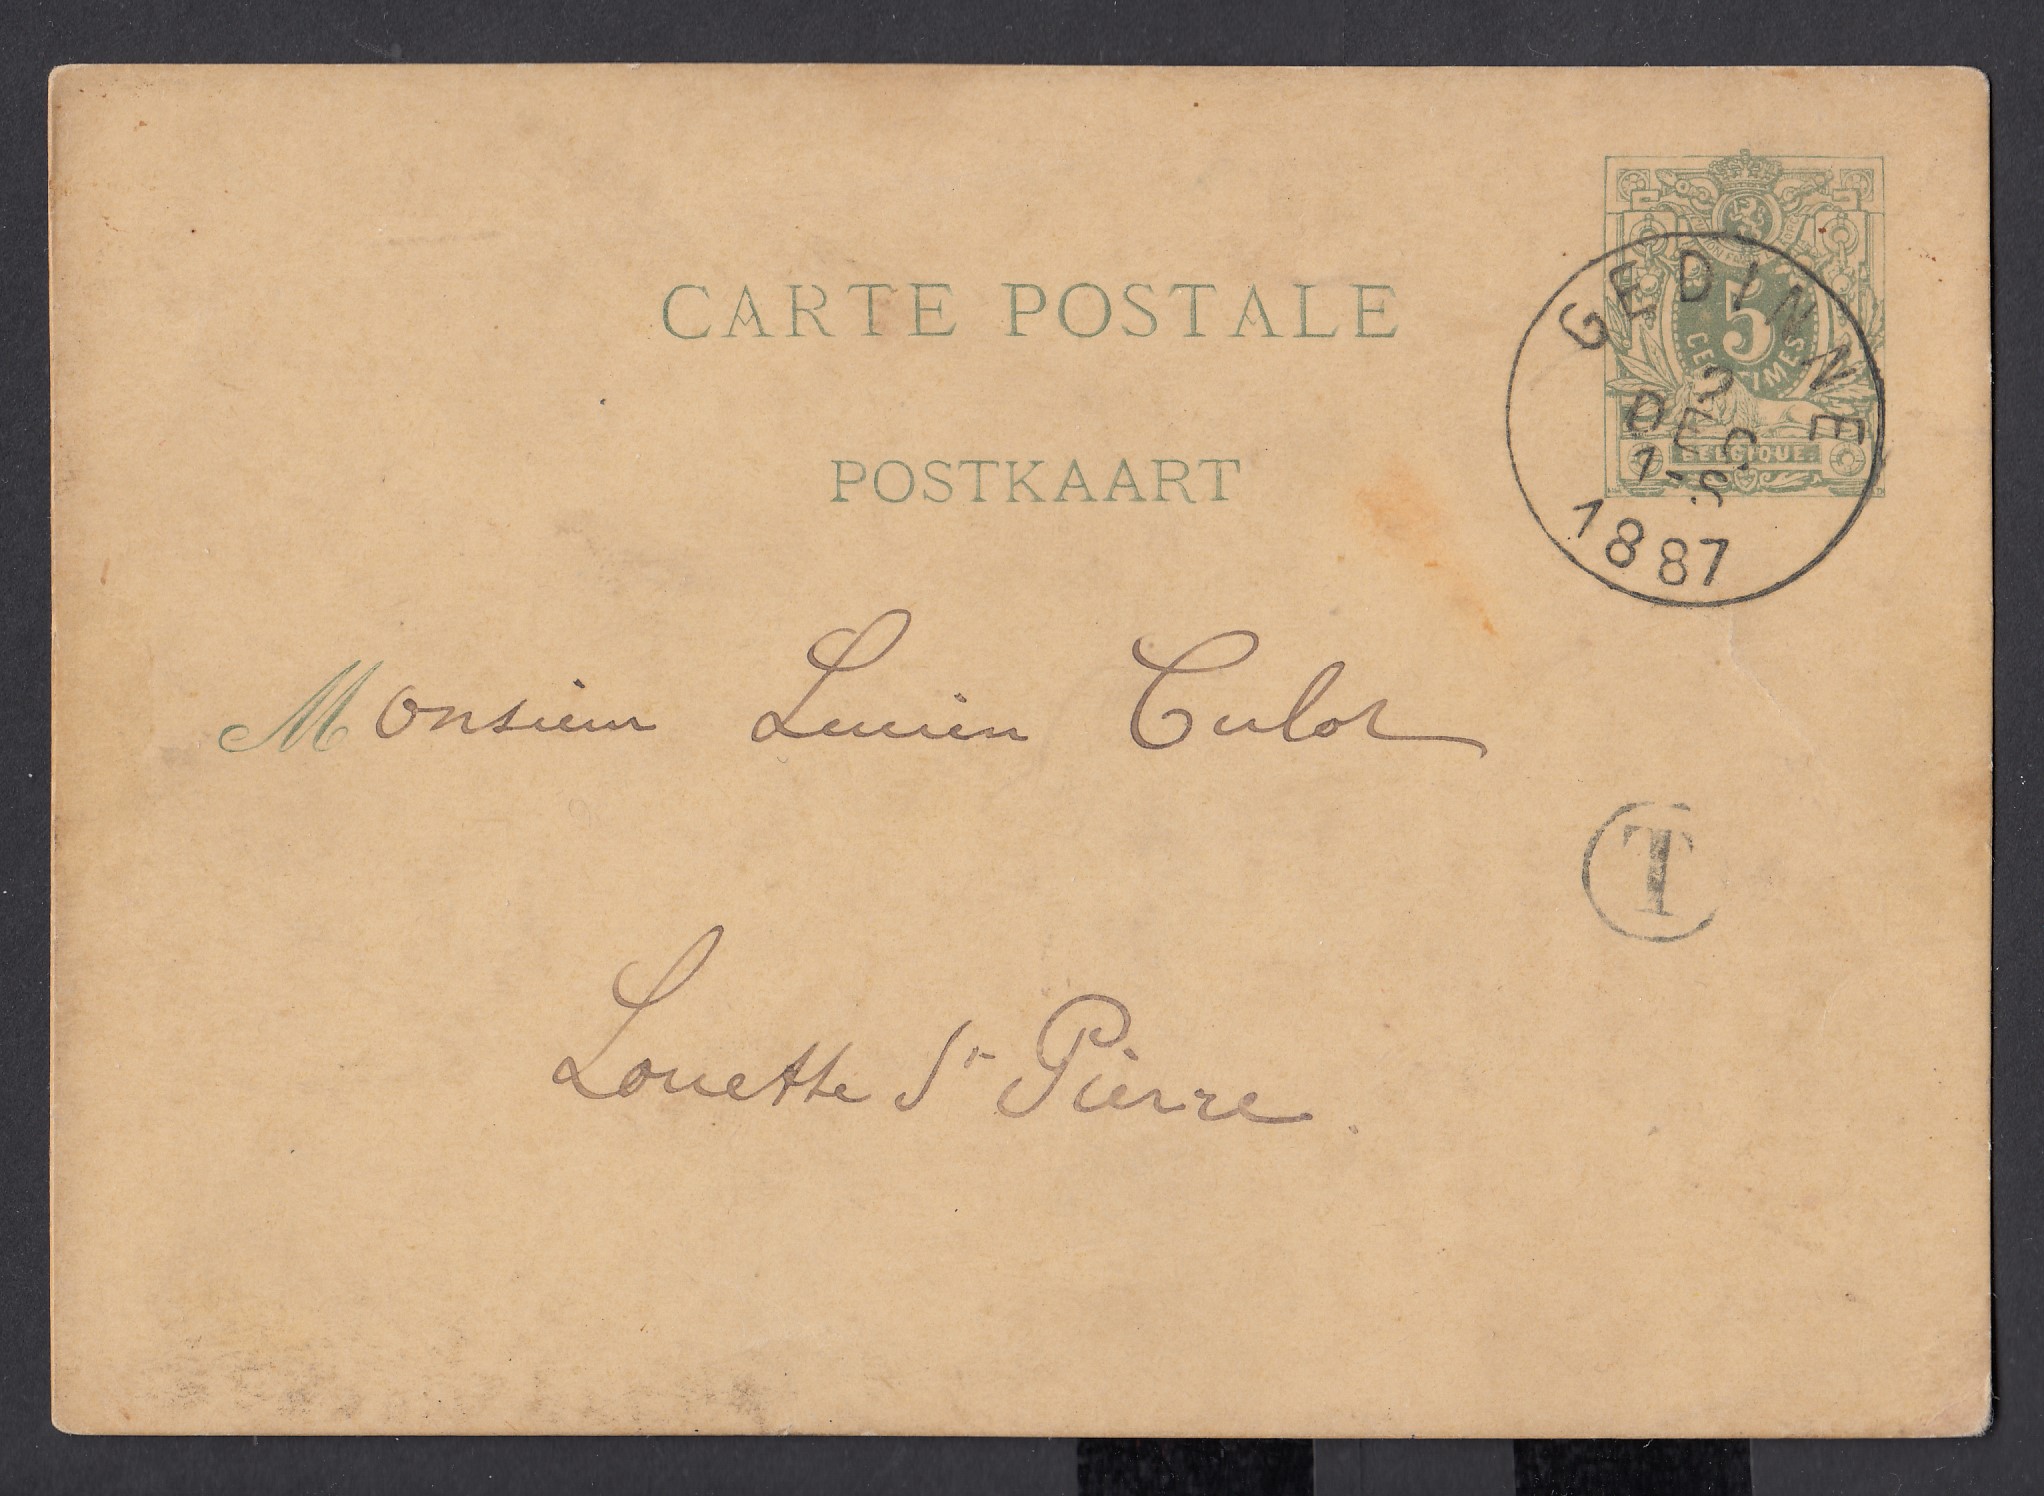 CARTE POSTALE
POSTKAART
5
CENTIMES
BELGIQUE
GEDINNE
2
DEC
1-S
1887
Monsieur Lucien Culot
T
Louette St Pierre.